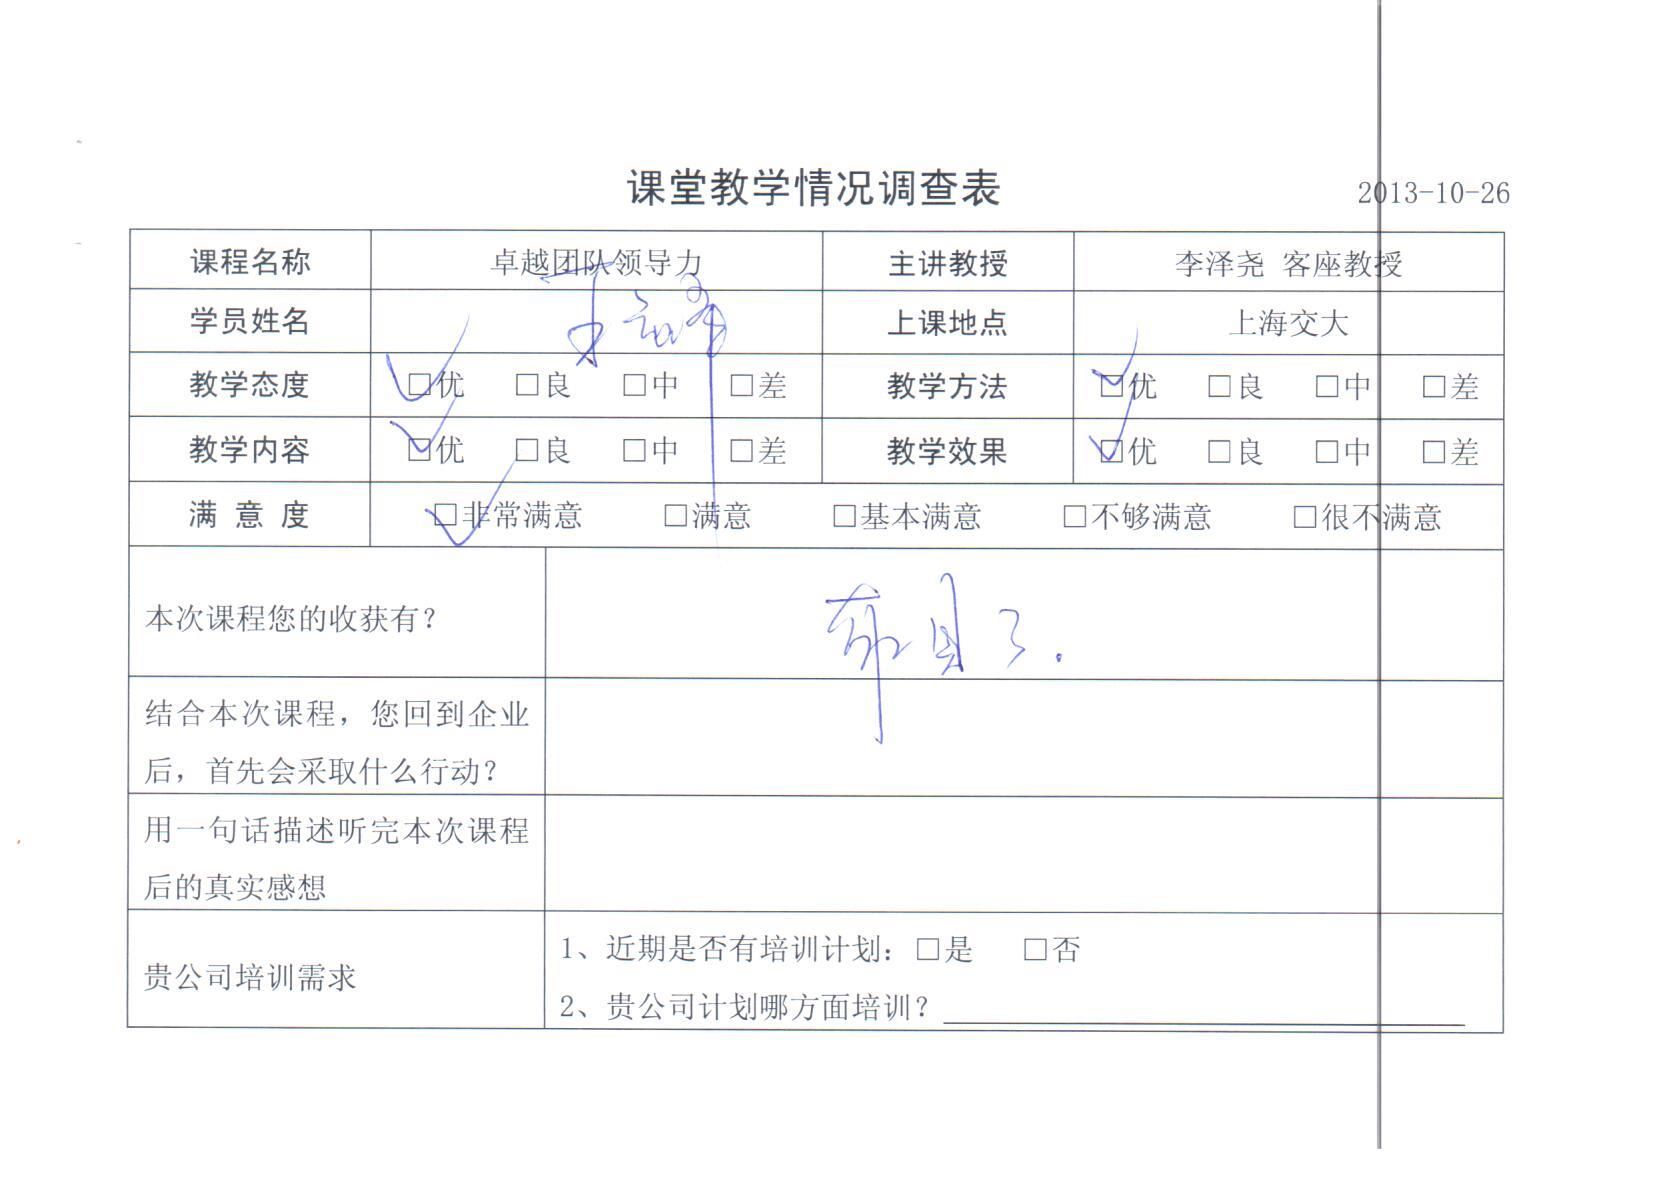 课堂教学情况调查表 2013-10-26
课程名称 卓越团队领导力 主讲教授 李泽尧 客座教授
学员姓名 上课地点 上海交大
教学态度 □优 □良 □中 □差 教学方法 □优 □良 □中 □差
教学内容 □优 □良 □中 □差 教学效果 □优 □良 □中 □差
满 意 度 □非常满意 □满意 □基本满意 □不够满意 □很不满意
本次课程您的收获有？
结合本次课程，您回到企业
后，首先会采取什么行动？
用一句话描述听完本次课程
后的真实感想
贵公司培训需求
1、近期是否有培训计划：□是 □否
2、贵公司计划哪方面培训？